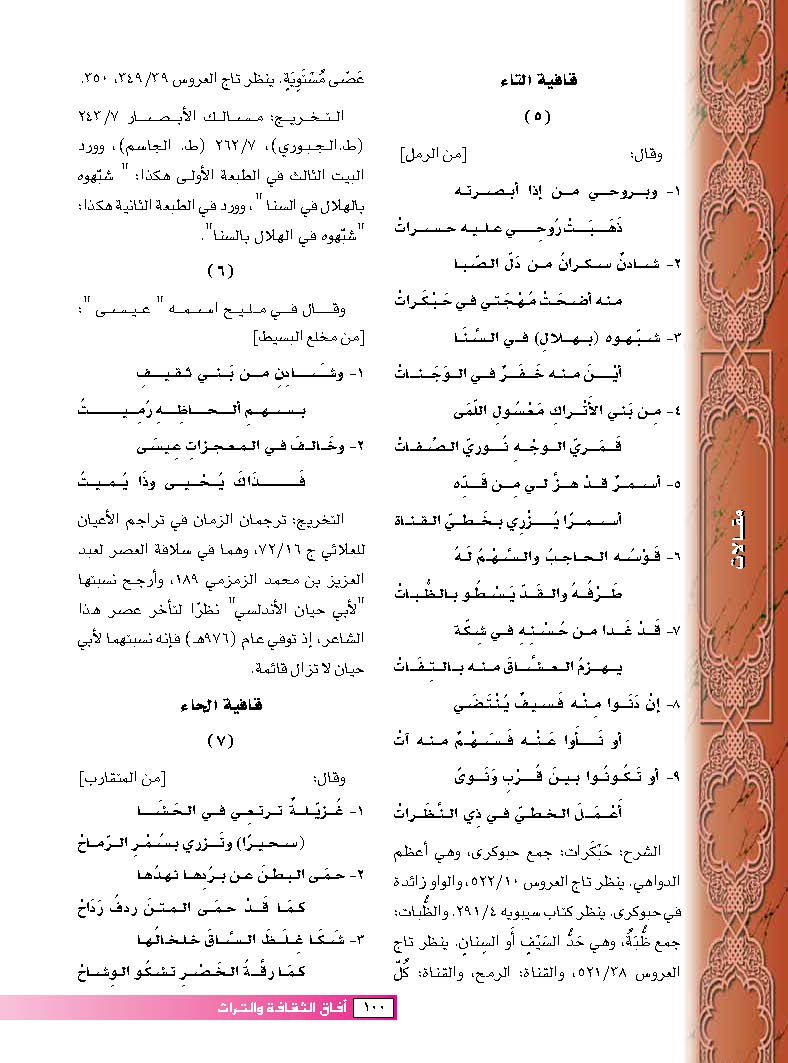 قافية التاء
(٥)
وقال: [من الرمل]
١- وبروحي من إذا أبصرته
ذَهَبَتْ رُوحي عليه حسراتْ
٢- شادنٌ سكرانُ من دَلّ الصّبا
منه أضحَتْ مُهْجَتي في حَبْكَراتْ
٣- شبّهوه (بهلالٍ) في السَّنَا
أيْنَ منه خَفَرٌ في الوَجَنَاتْ
٤- مِن بَني الأَتْراكِ مَعْسُولِ اللّمَى
قَمَريّ الوجْهِ نُوريّ الصّفاتْ
٥- أسمرٌ قدْ هزَّ لي مِن قَدّه
أسمرًا يُزْرِي بخَطّيّ القناة
٦- قَوْسُه الحاجبُ والسَّهْمُ لَهُ
طَرْفُهُ والقَدّ يَسْطُو بالظُّبَاتْ
٧- قَدْ غَدا من حُسْنِه في شِكّة
يهزمُ العشَّاقَ منه بالتِفَاتْ
٨- إنْ دَنَوا مِنْه فَسيفٌ يُنْتَضَي
أو نَأَوا عَنْه فَسَهْمٌ منه آتْ
٩- أو تَكُونُوا بينَ قُرْبٍ وَنَوىً
أَعْمَلَ الخطيّ في ذِي النَّظَراتْ
الشرح: حَبْكَرات: جمع حبوكرى، وهي أعظم
الدواهي. ينظر تاج العروس ٥٢٢/١٠، والواو زائدة
في حبوكرى. ينظر كتاب سيبويه ٢٩١/٤. والظُّبات:
جمع ظُبَةٌ، وهي حَدُّ السَيْفِ أَو السِنانِ. ينظر تاج
العروس ٥٢١/٣٨، والقناة: الرمح، والقناة: كُلّ
عَصًى مُسْتَوِيَةٍ. ينظر تاج العروس ٣٤٩/٣٩، ٣٥٠.
التخريج: مسالك الأبصار ٢٤٣/٧
(ط.الجبوري)، ٢٦٢/٧ (ط. الجاسم)، وورد
البيت الثالث في الطبعة الأولى هكذا: " شبّهوه
بالهلال في السنا "، وورد في الطبعة الثانية هكذا:
"شبّهوه في الهلال بالسنا".
(٦)
وقال في مليح اسمه " عيسى ":
[من مخلع البسيط]
١- وشَادِنٍ من بَني ثَقيفٍ
بسهمِ ألحاظِهِ رُمِيتُ
٢- وخَالفَ في المعجزاتِ عِيسَى
فَذَاكَ يُحْيى وذَا يُميتُ
التخريج: ترجمان الزمان في تراجم الأعيان
للعلائي ج ٧٢/١٦، وهما في سلافة العصر لعبد
العزيز بن محمد الزمزمي ١٨٩، وأرجح نسبتها
"لأبي حيان الأندلسي" نظرًا لتأخر عصر هذا
الشاعر، إذ توفي عام (٩٧٦هـ) فإنه نسبتهما لأبي
حيان لا تزال قائمة.
قافية الحاء
(٧)
وقال: [من المتقارب]
١- غُزيّلةٌ ترتعي في الحَشَا
(سحيرًا) وتَزري بسُمْرِ الرّماحْ
٢- حمَى البطنَ عن بردِها نهدُها
كمَا قَدْ حمَى المتنَ ردفُ رَدَاحْ
٣- شَكَا غِلَظَ السَّاقَ خلخالُها
كمَا رقَّةُ الخَصْرِ تشكُو الوِشاحْ
مقالات
١٠٠ آفاق الثقافة والتراث